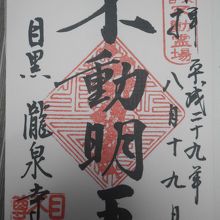 拝
平成二十九年
八月十九日
霊場
不動明王
目黒 瀧泉寺